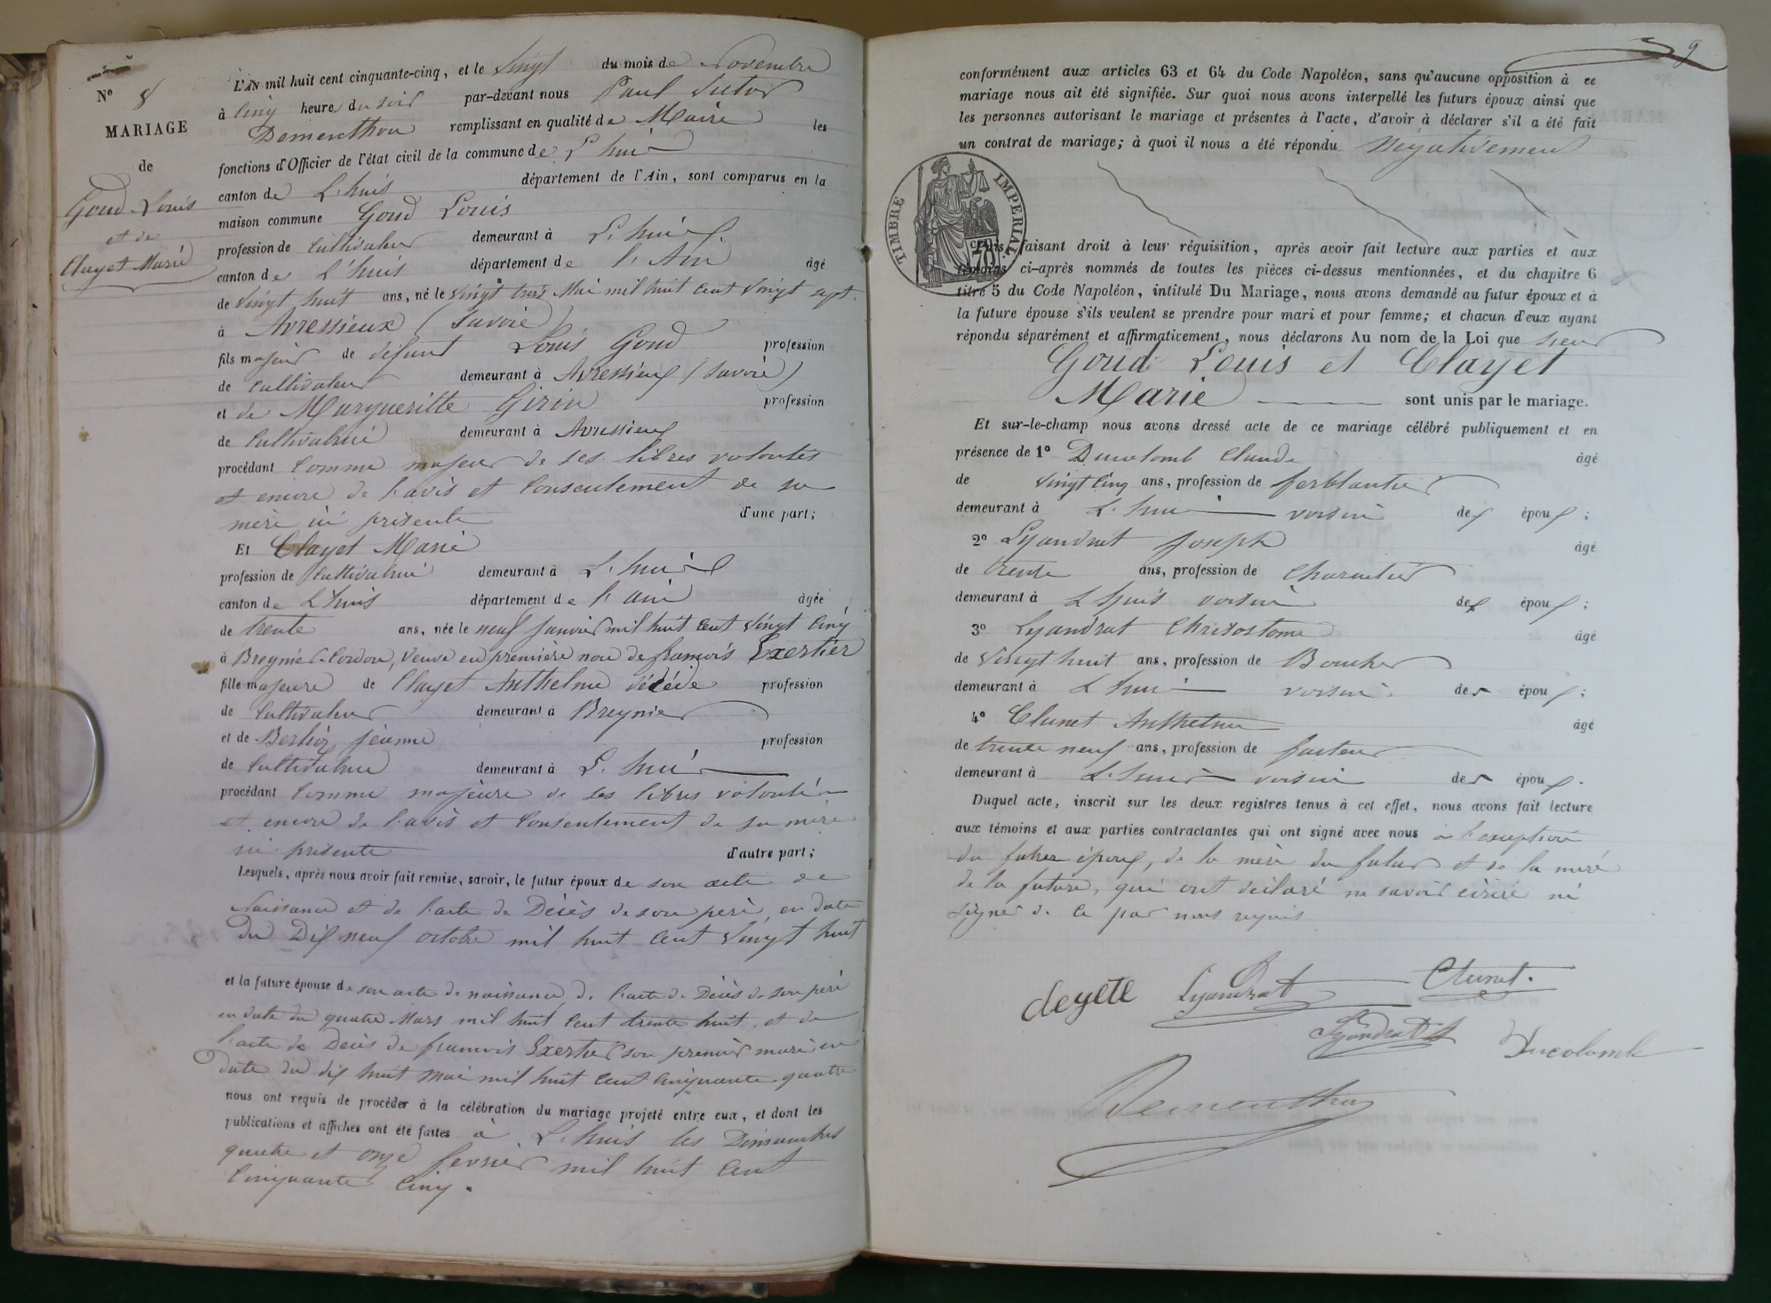 N° 8
MARIAGE
de
Goud Louis
et de
Clayet Marie
L'AN mil huit cent cinquante-cinq, et le vingt du mois de Novembre
à cinq heure du soir par-devant nous Paul Sutor
Dementhon remplissant en qualité de Maire les
fonctions d'Officier de l'état civil de la commune de L'huis
canton de L'huis département de l'Ain, sont comparus en la
maison commune Goud Louis
profession de Cultivateur demeurant à L'huis
canton de L'huis département de l'Ain âgé
de vingt huit ans, né le vingt trois Mai mil huit cent vingt sept
à Avressieux (Savoie)
fils majeur de défunt Louis Goud profession
de Cultivateur demeurant à Avressieux (Savoie)
et de Margueritte Girin profession
de Cultivatrice demeurant à Avressieux
procédant comme majeur de ses libres volontés
et encore de l'avis et consentement de sa
mère ici présente d'une part;
Et Clayet Marie
profession de Cultivatrice demeurant à L'huis
canton de L'huis département de l'ain âgée
de trente ans, née le neuf Janvier mil huit cent vingt cinq
à Breynier Cordon, veuve en première noce de françois Exertier
fille majeure de Clayet Anthelme décédé profession
de Cultivateur demeurant à Breynier
et de Berlioz Jeanne profession
de Cultivatrice demeurant à L'huis
procédant comme majeure de ses libres volontés
et encore de l'avis et consentement de sa mère
ici présente d'autre part;
Lesquels, après nous avoir fait remise, savoir, le futur époux de son acte de
Naissance et de l'acte de Décès de son père, en date
du Dix neuf octobre mil huit cent vingt huit
et la future épouse de son acte de naissance de l'acte de Décès de son père
en date du quatre Mars mil huit cent trente huit, et de
l'acte de Décès de francois Exertier son premier mari en
date du dix huit mai mil huit cent cinquante quatre
nous ont requis de procéder à la célébration du mariage projeté entre eux, et dont les
publications et affiches ont été faites à L'huis les Dimanches
quatre et onze fevrier mil huit cent
cinquante cinq.
9
conformément aux articles 63 et 64 du Code Napoléon, sans qu'aucune opposition à ce
mariage nous ait été signifiée. Sur quoi nous avons interpellé les futurs époux ainsi que
les personnes autorisant le mariage et présentes à l'acte, d'avoir à déclarer s'il a été fait
un contrat de mariage; à quoi il nous a été répondu Négativement
TIMBRE IMPERIAL
70
Puis, faisant droit à leur réquisition, après avoir fait lecture aux parties et aux
témoins ci-après nommés de toutes les pièces ci-dessus mentionnées, et du chapitre 6
titre 5 du Code Napoléon, intitulé Du Mariage, nous avons demandé au futur époux et à
la future épouse s'ils veulent se prendre pour mari et pour femme; et chacun d'eux ayant
répondu séparément et affirmativement, nous déclarons Au nom de la Loi que sieur
Goud Louis et Clayet
Marie sont unis par le mariage.
Et sur-le-champ nous avons dressé acte de ce mariage célébré publiquement et en
présence de 1° Ducolomb Claude âgé
de vingt cinq ans, profession de ferblantier
demeurant à L'huis voisin des époux;
2° Lyandrat Joseph âgé
de trente ans, profession de Charcutier
demeurant à L'huis voisin des époux;
3° Lyandrat Chrisostome âgé
de vingt huit ans, profession de Boucher
demeurant à L'huis voisin des époux;
4° Clunet Anthelme âgé
de trente neuf ans, profession de facteur
demeurant à L'huis voisin des époux.
Duquel acte, inscrit sur les deux registres tenus à cet effet, nous avons fait lecture
aux témoins et aux parties contractantes qui ont signé avec nous à l'exception
du futur époux, de la mère du futur et de la mère
de la future, qui ont déclaré ne savoir écrire ni
signer de ce par nous requis
cleyete Lyandrat Clunet.
Lyandrat Ducolomb
Dementhon